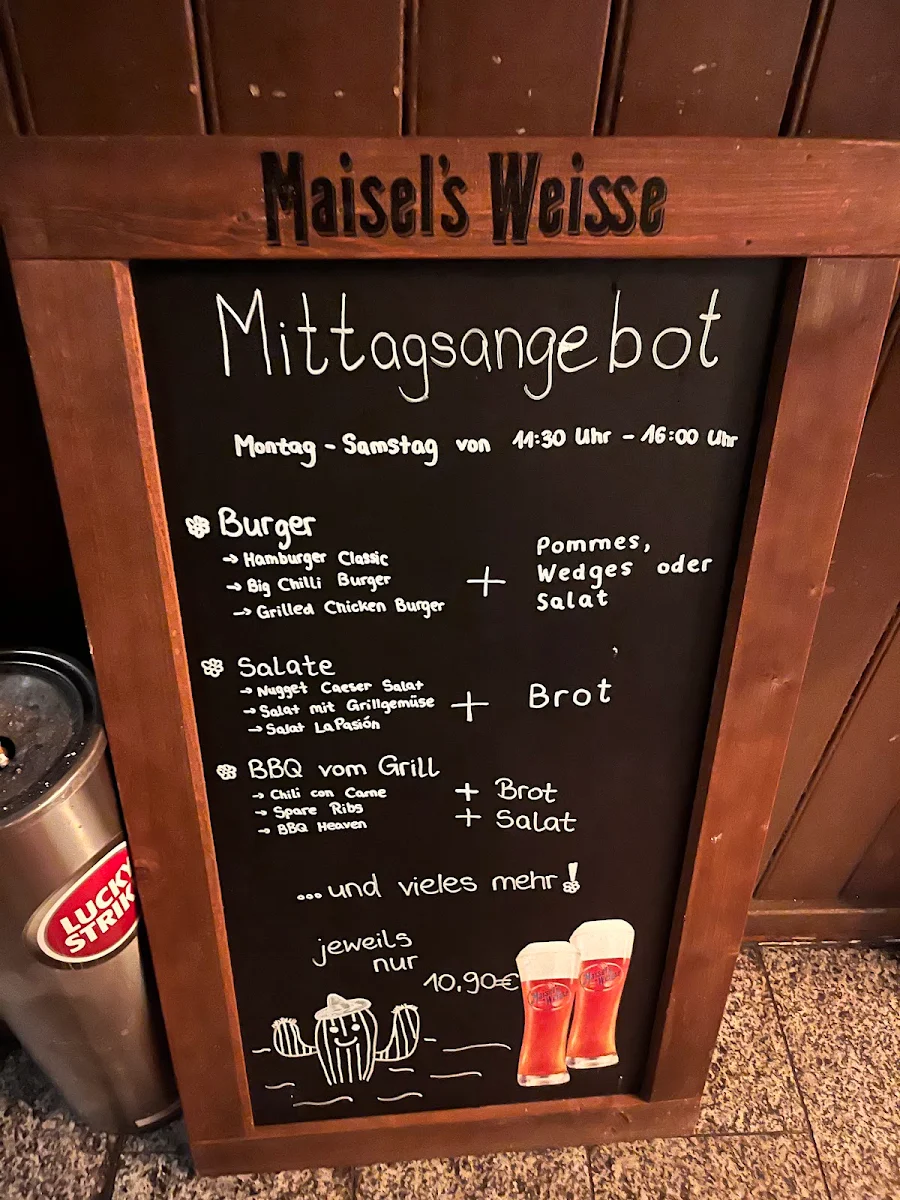 Maisel's Weisse
Mittagsangebot
Montag - Samstag von 11:30 Uhr - 16:00 Uhr
Burger
→ Hamburger Classic
→ Big Chilli Burger
→ Grilled Chicken Burger
+
Pommes,
Wedges oder
Salat
Salate
→ Nugget Caeser Salat
→ Salat mit Grillgemüse
→ Salat LaPasión
+ Brot
BBQ vom Grill
→ Chili con Carne
→ Spare Ribs
→ BBQ Heaven
+ Brot
+ Salat
...und vieles mehr!
jeweils
nur
10,90€
Maisel's
Weisse
Maisel's
Weisse
LUCKY
STRIK